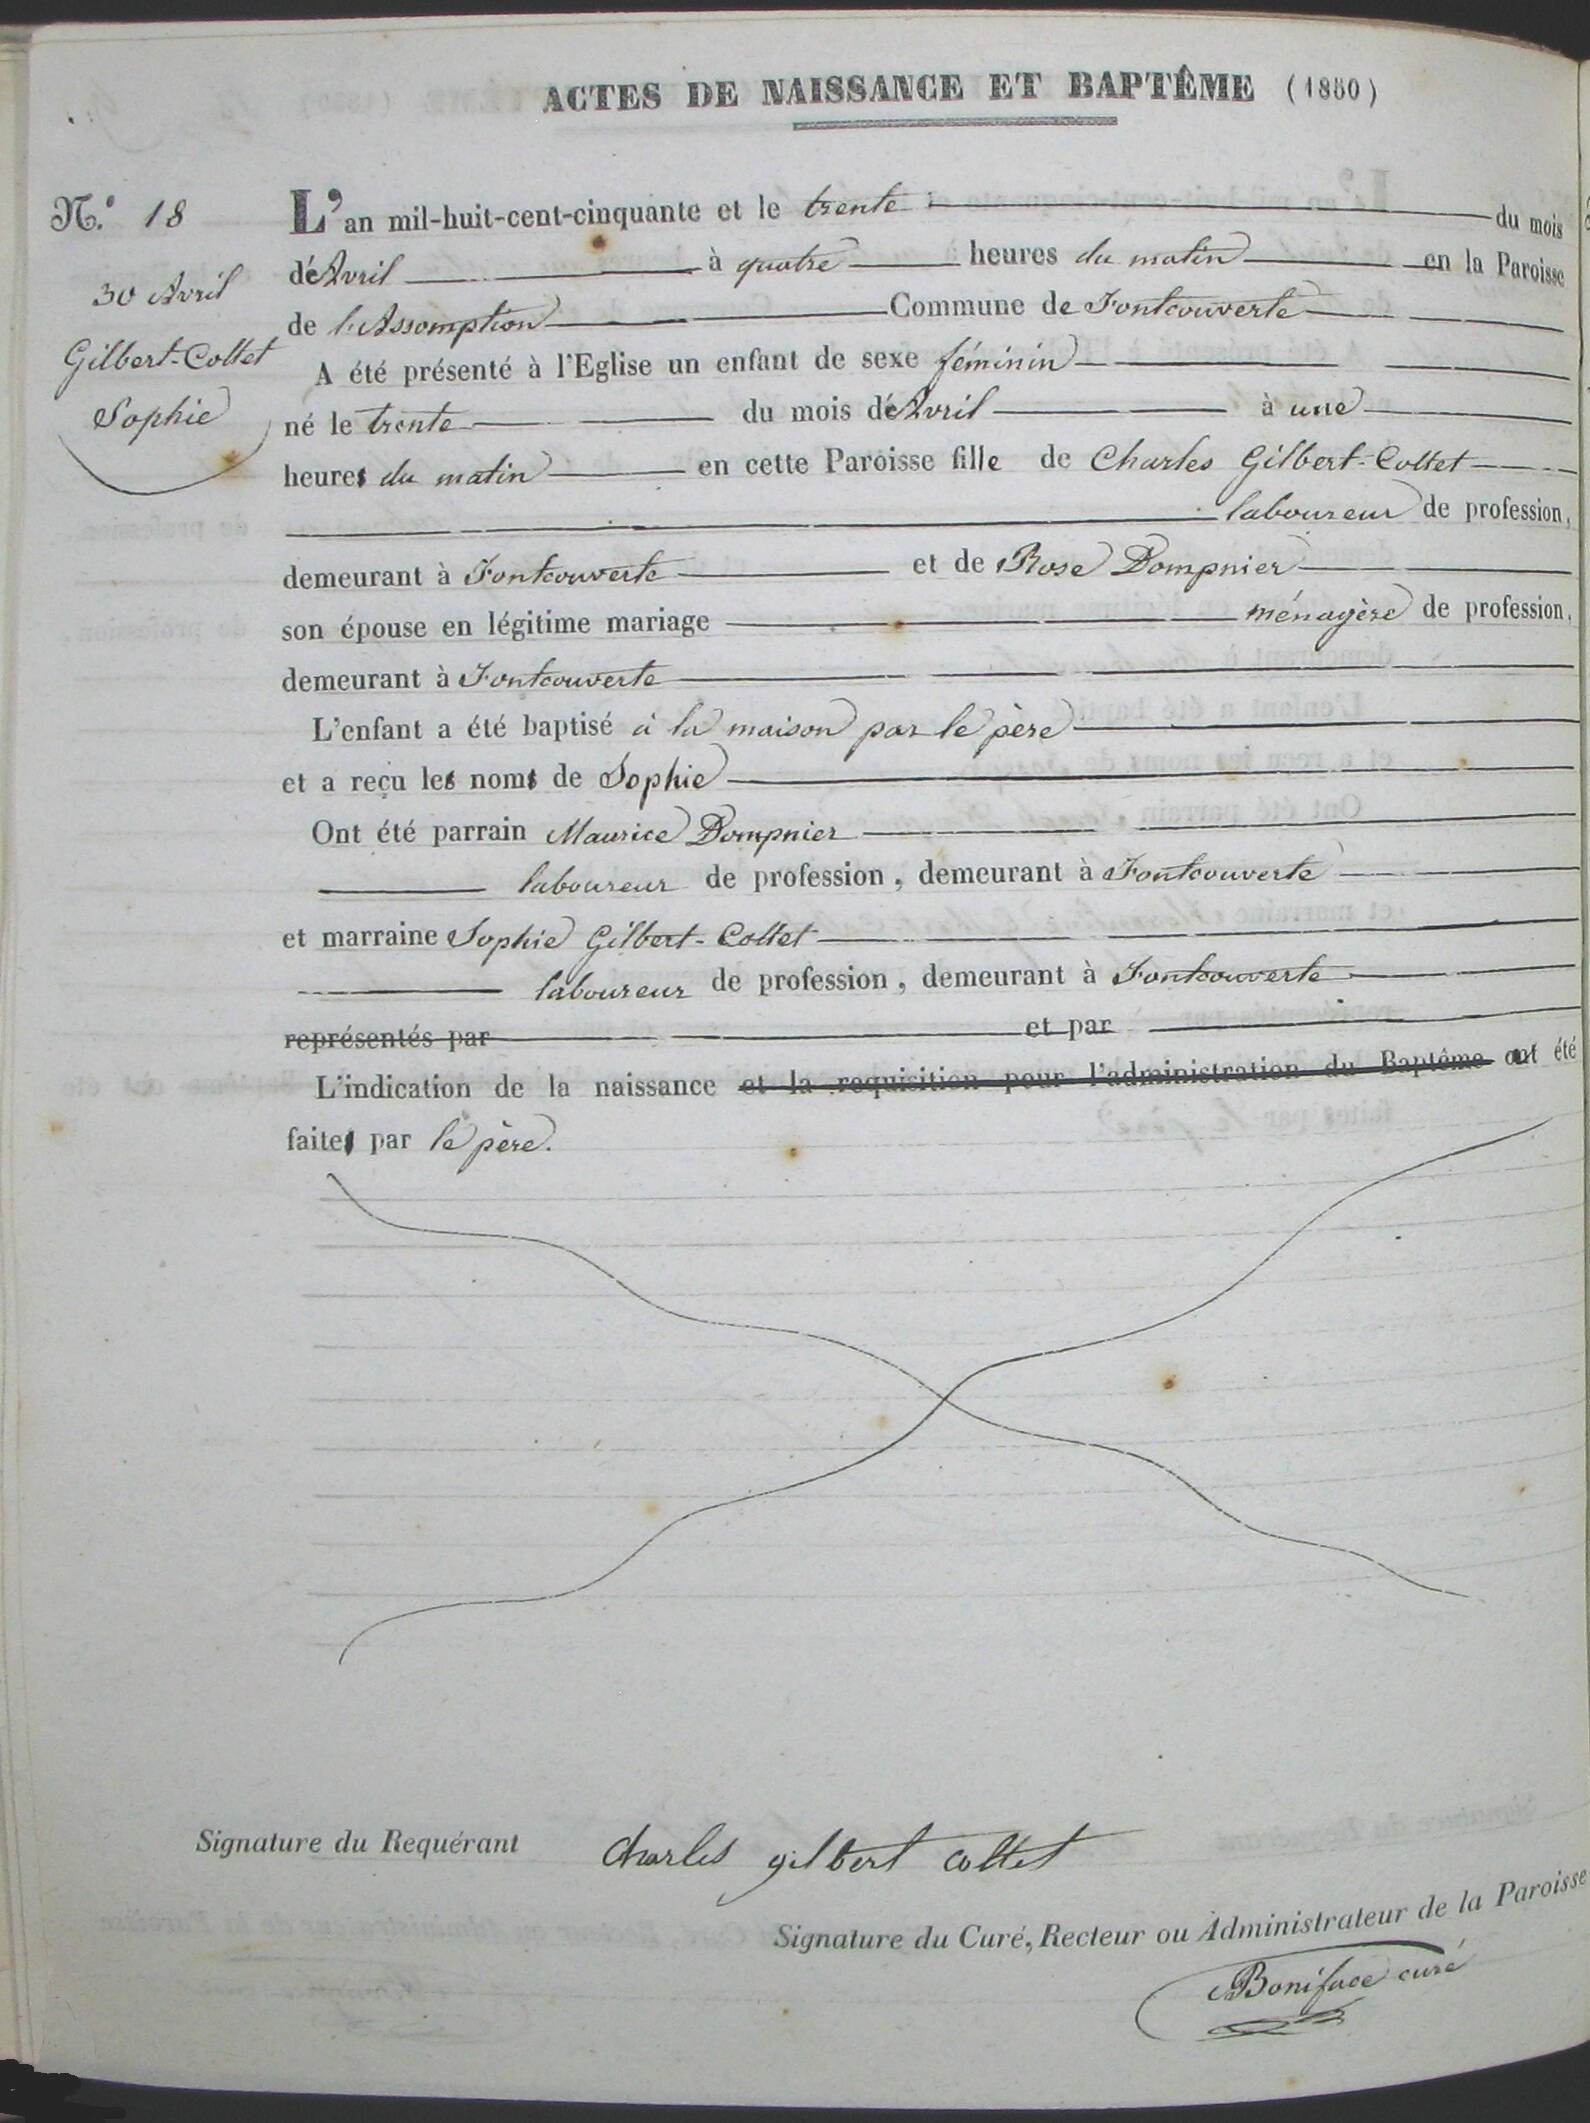 ACTES DE NAISSANCE ET BAPTÊME (1850)
N.° 18
30 Avril
Gilbert-Collet
Sophie
L'an mil-huit-cent-cinquante et le trente du mois
d'Avril à quatre heures du matin en la Paroisse
de l'Assomption Commune de Fontcouverte
A été présenté à l'Eglise un enfant de sexe féminin
né le trente du mois d'Avril à une
heures du matin en cette Paroisse fille de Charles Gilbert-Collet
laboureur de profession,
demeurant à Fontcouverte et de Rose Dompnier
son épouse en légitime mariage ménagère de profession,
demeurant à Fontcouverte
L'enfant a été baptisé à la maison par le père
et a reçu les noms de Sophie
Ont été parrain Maurice Dompnier
laboureur de profession, demeurant à Fontcouverte
et marraine Sophie Gilbert-Collet
laboureur de profession, demeurant à Fontcouverte
représentés par et par
L'indication de la naissance et la requisition pour l'administration du Baptême ont été
faites par le père.
Signature du Requérant charles gilbert collet
Signature du Curé, Recteur ou Administrateur de la Paroisse
Boniface curé